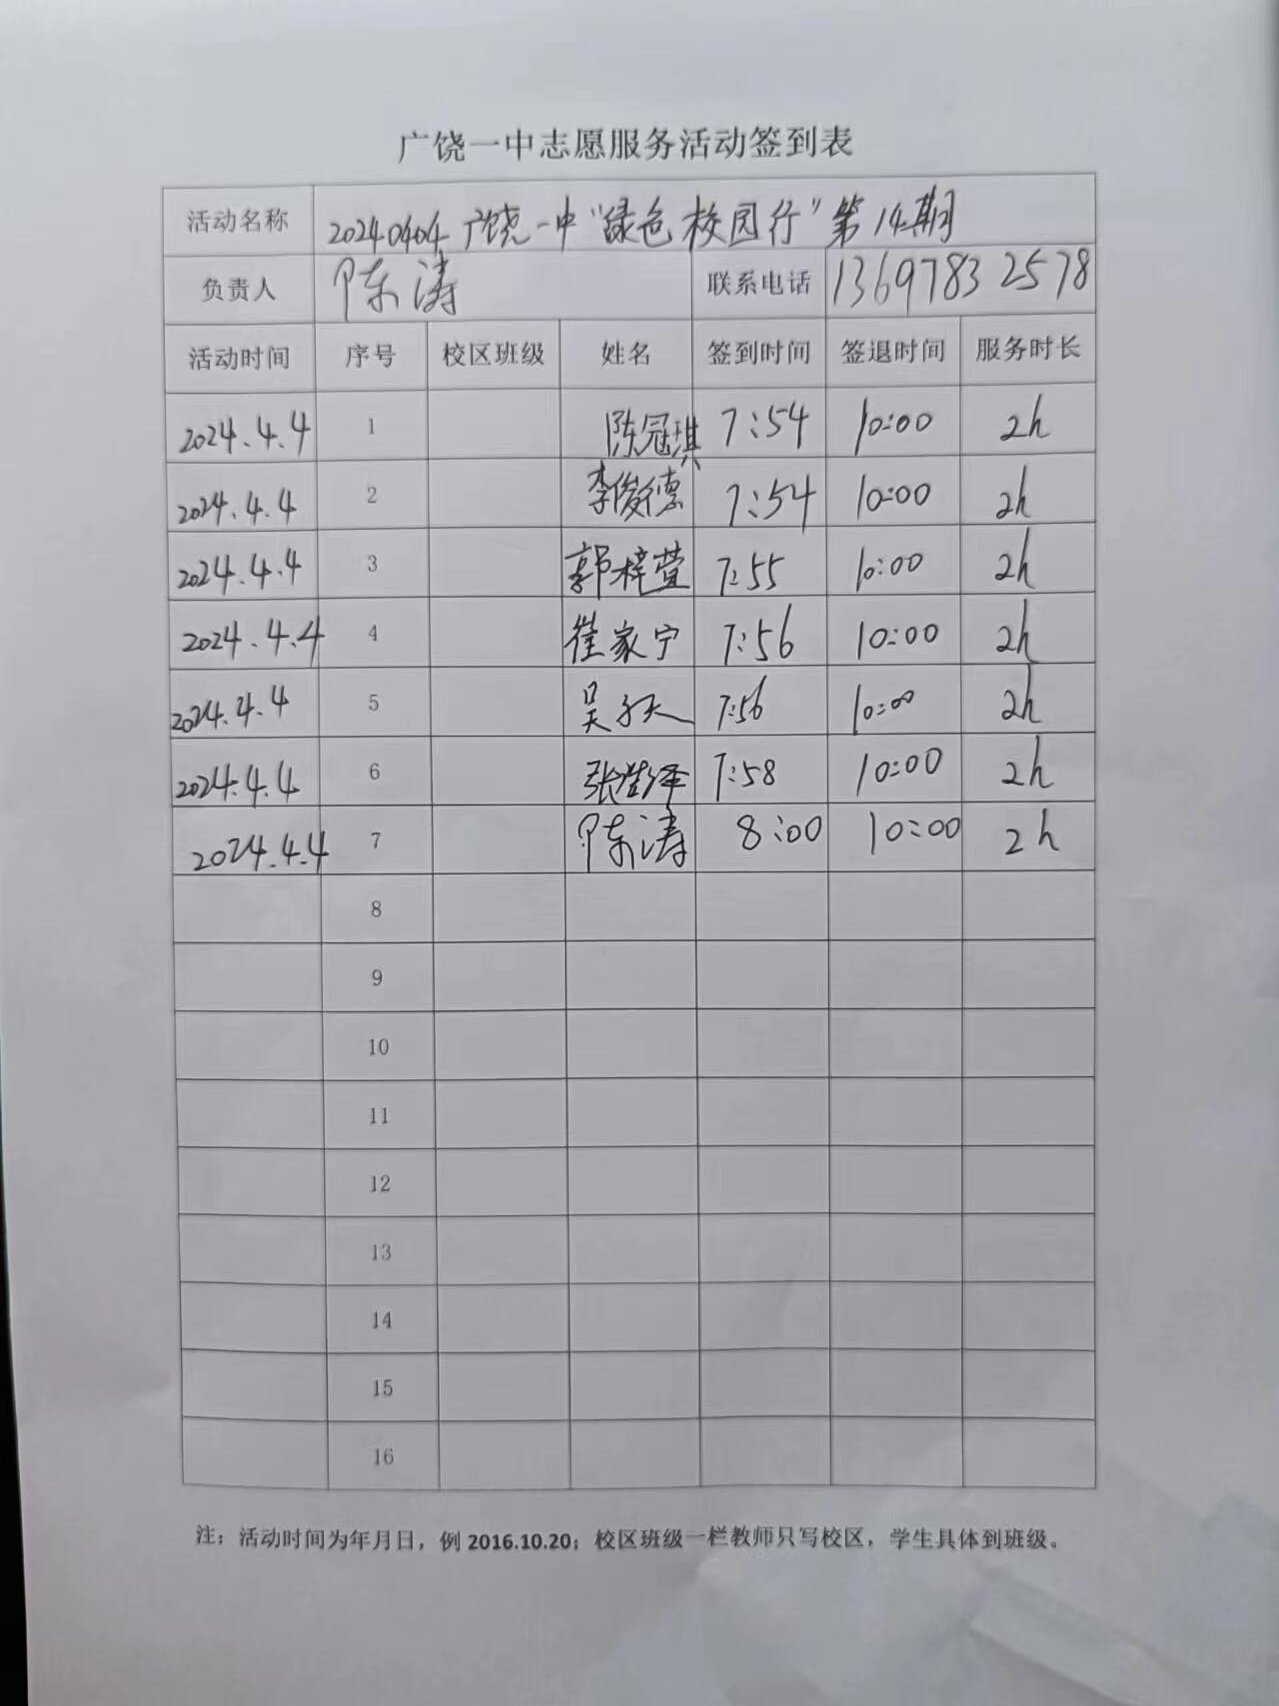 广饶一中志愿服务活动签到表
活动名称 20240404 广饶一中“绿色校园行”第14期
负责人 陈涛 联系电话 13697832578
活动时间 序号 校区班级 姓名 签到时间 签退时间 服务时长
2024.4.4 1 陈冠琪 7:54 10:00 2h
2024.4.4 2 李俊德 7:54 10:00 2h
2024.4.4 3 郭梓萱 7:55 10:00 2h
2024.4.4 4 崔家宁 7:56 10:00 2h
2024.4.4 5 吴 7:56 10:00 2h
2024.4.4 6 张 7:58 10:00 2h
2024.4.4 7 陈涛 8:00 10:00 2h
8
9
10
11
12
13
14
15
16
注：活动时间为年月日，例 2016.10.20；校区班级一栏教师只写校区，学生具体到班级。